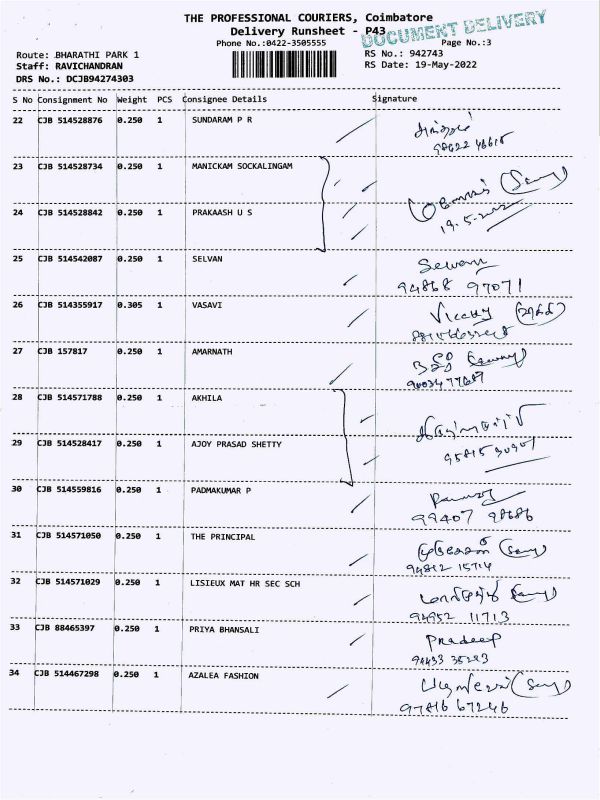 THE PROFESSIONAL COURIERS, Coimbatore
Delivery Runsheet - P43
DOCUMENT DELIVERY
Phone No.:0422-3505555
Page No.:3
Route: BHARATHI PARK 1
RS No.: 942743
Staff: RAVICHANDRAN
RS Date: 19-May-2022
DRS No.: DCJB94274303
S No Consignment No Weight PCS Consignee Details Signature
22 CJB 514528876 0.250 1 SUNDARAM P R
23 CJB 514528734 0.250 1 MANICKAM SOCKALINGAM
24 CJB 514528842 0.250 1 PRAKAASH U S
19.5.2022
25 CJB 514542087 0.250 1 SELVAN
94868 97071
26 CJB 514355917 0.305 1 VASAVI
27 CJB 157817 0.250 1 AMARNATH
28 CJB 514571788 0.250 1 AKHILA
29 CJB 514528417 0.250 1 AJOY PRASAD SHETTY
30 CJB 514559816 0.250 1 PADMAKUMAR P
99407 98686
31 CJB 514571050 0.250 1 THE PRINCIPAL
94812 15714
32 CJB 514571029 0.250 1 LISIEUX MAT HR SEC SCH
94952 11713
33 CJB 88465397 0.250 1 PRIYA BHANSALI
Pradeep
94433 35283
34 CJB 514467298 0.250 1 AZALEA FASHION
97816 67246